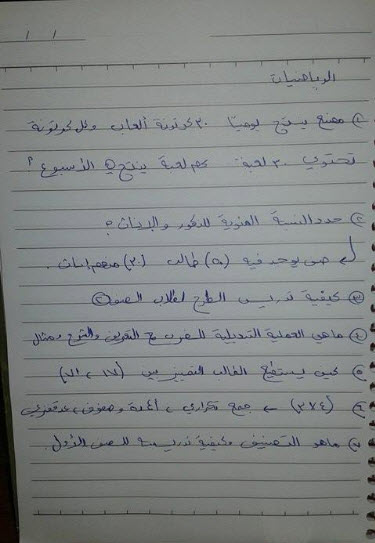 / /
الرياضيات
① مصنع ينتج يوميًا ٣٠ كرتونة ألعاب وكل كرتونة
تحتوي ٣٠ لعبة كم لعبة ينتج في الأسبوع ؟
② حدد النسبة المئوية للذكور والإناث ؟
صف يوجد فيه طالب منهم إناث.
③ كيفية تدريس الطرح لطلاب الصف
④ ماهي العملية التبديلية للضرب مع التعريف والشرح ومثال
⑤ كيف يستطيع الطالب التمييز بين
⑥ جمع تكراري،
⑦ ماهو التصنيف وكيفية تدريسه للصف الأول.